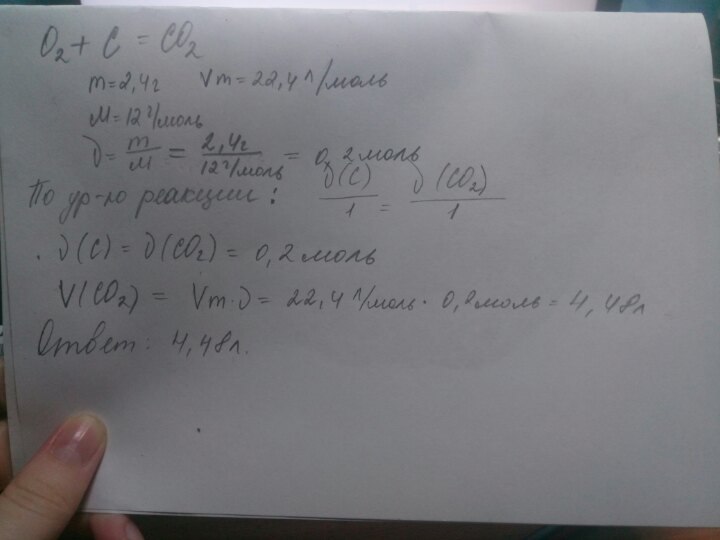 O₂ + C = CO₂
m = 2,4 г Vm = 22,4 л/моль
M = 12 г/моль
ν = m/M = 2,4г/12 г/моль = 0,2 моль
По ур-ю реакции: ν(C)/1 = ν(CO₂)/1
ν(C) = ν(CO₂) = 0,2 моль
V(CO₂) = Vm · ν = 22,4 л/моль · 0,2 моль = 4,48 л
Ответ: 4,48 л.